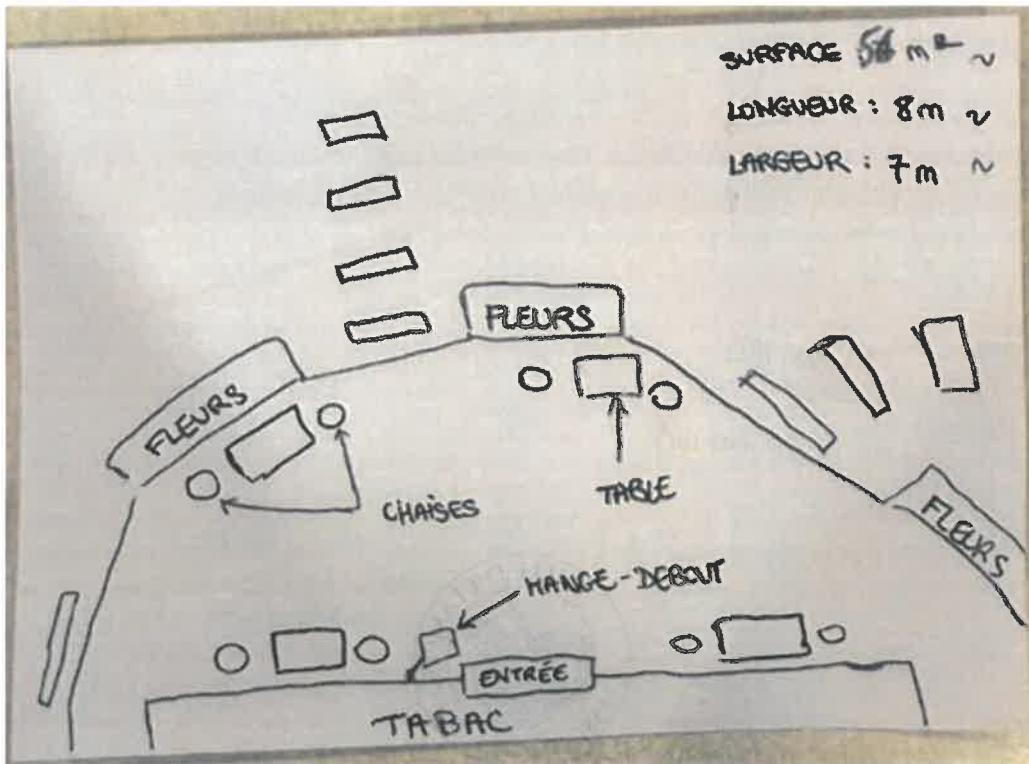 SURFACE 56 m² ~
LONGUEUR : 8m ~
LARGEUR : 7m ~
FLEURS
FLEURS
CHAISES
TABLE
FLEURS
MANGE-DEBOUT
ENTRÉE
TABAC